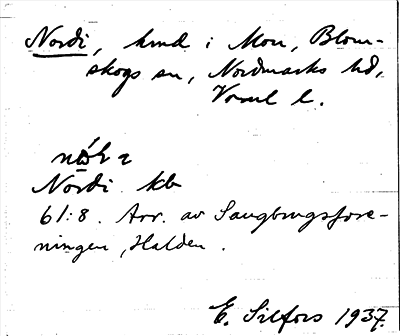 Nordi, hmd i Mon, Blom-
skogs sn, Nordmarks hd,
Värml l.
Nordi kb
61:8. Arr. av Saugbrugsföre-
ningen, Halden.
E. Silfors 1937.